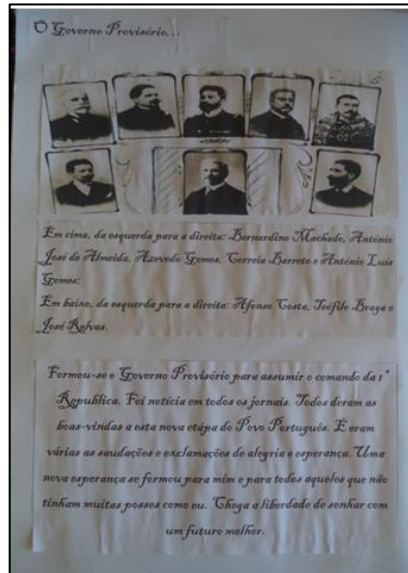 O Governo Provisório...
Em cima, da esquerda para a direita: Bernardino Machado, António
José de Almeida, Azevedo Gomes, Correia Barreto e António Luís
Gomes;
Em baixo, da esquerda para a direita: Afonso Costa, Teófilo Braga e
José Relvas.
Formou-se o Governo Provisório para assumir o comando da 1ª
Republica. Foi notícia em todos os jornais. Todos deram as
boas-vindas a esta nova etapa do Povo Português. E eram
várias as saudações e exclamações de alegria e esperança. Uma
nova esperança se formou para mim e para todos aqueles que não
tinham muitas posses como eu. Chega a liberdade de sonhar com
um futuro melhor.